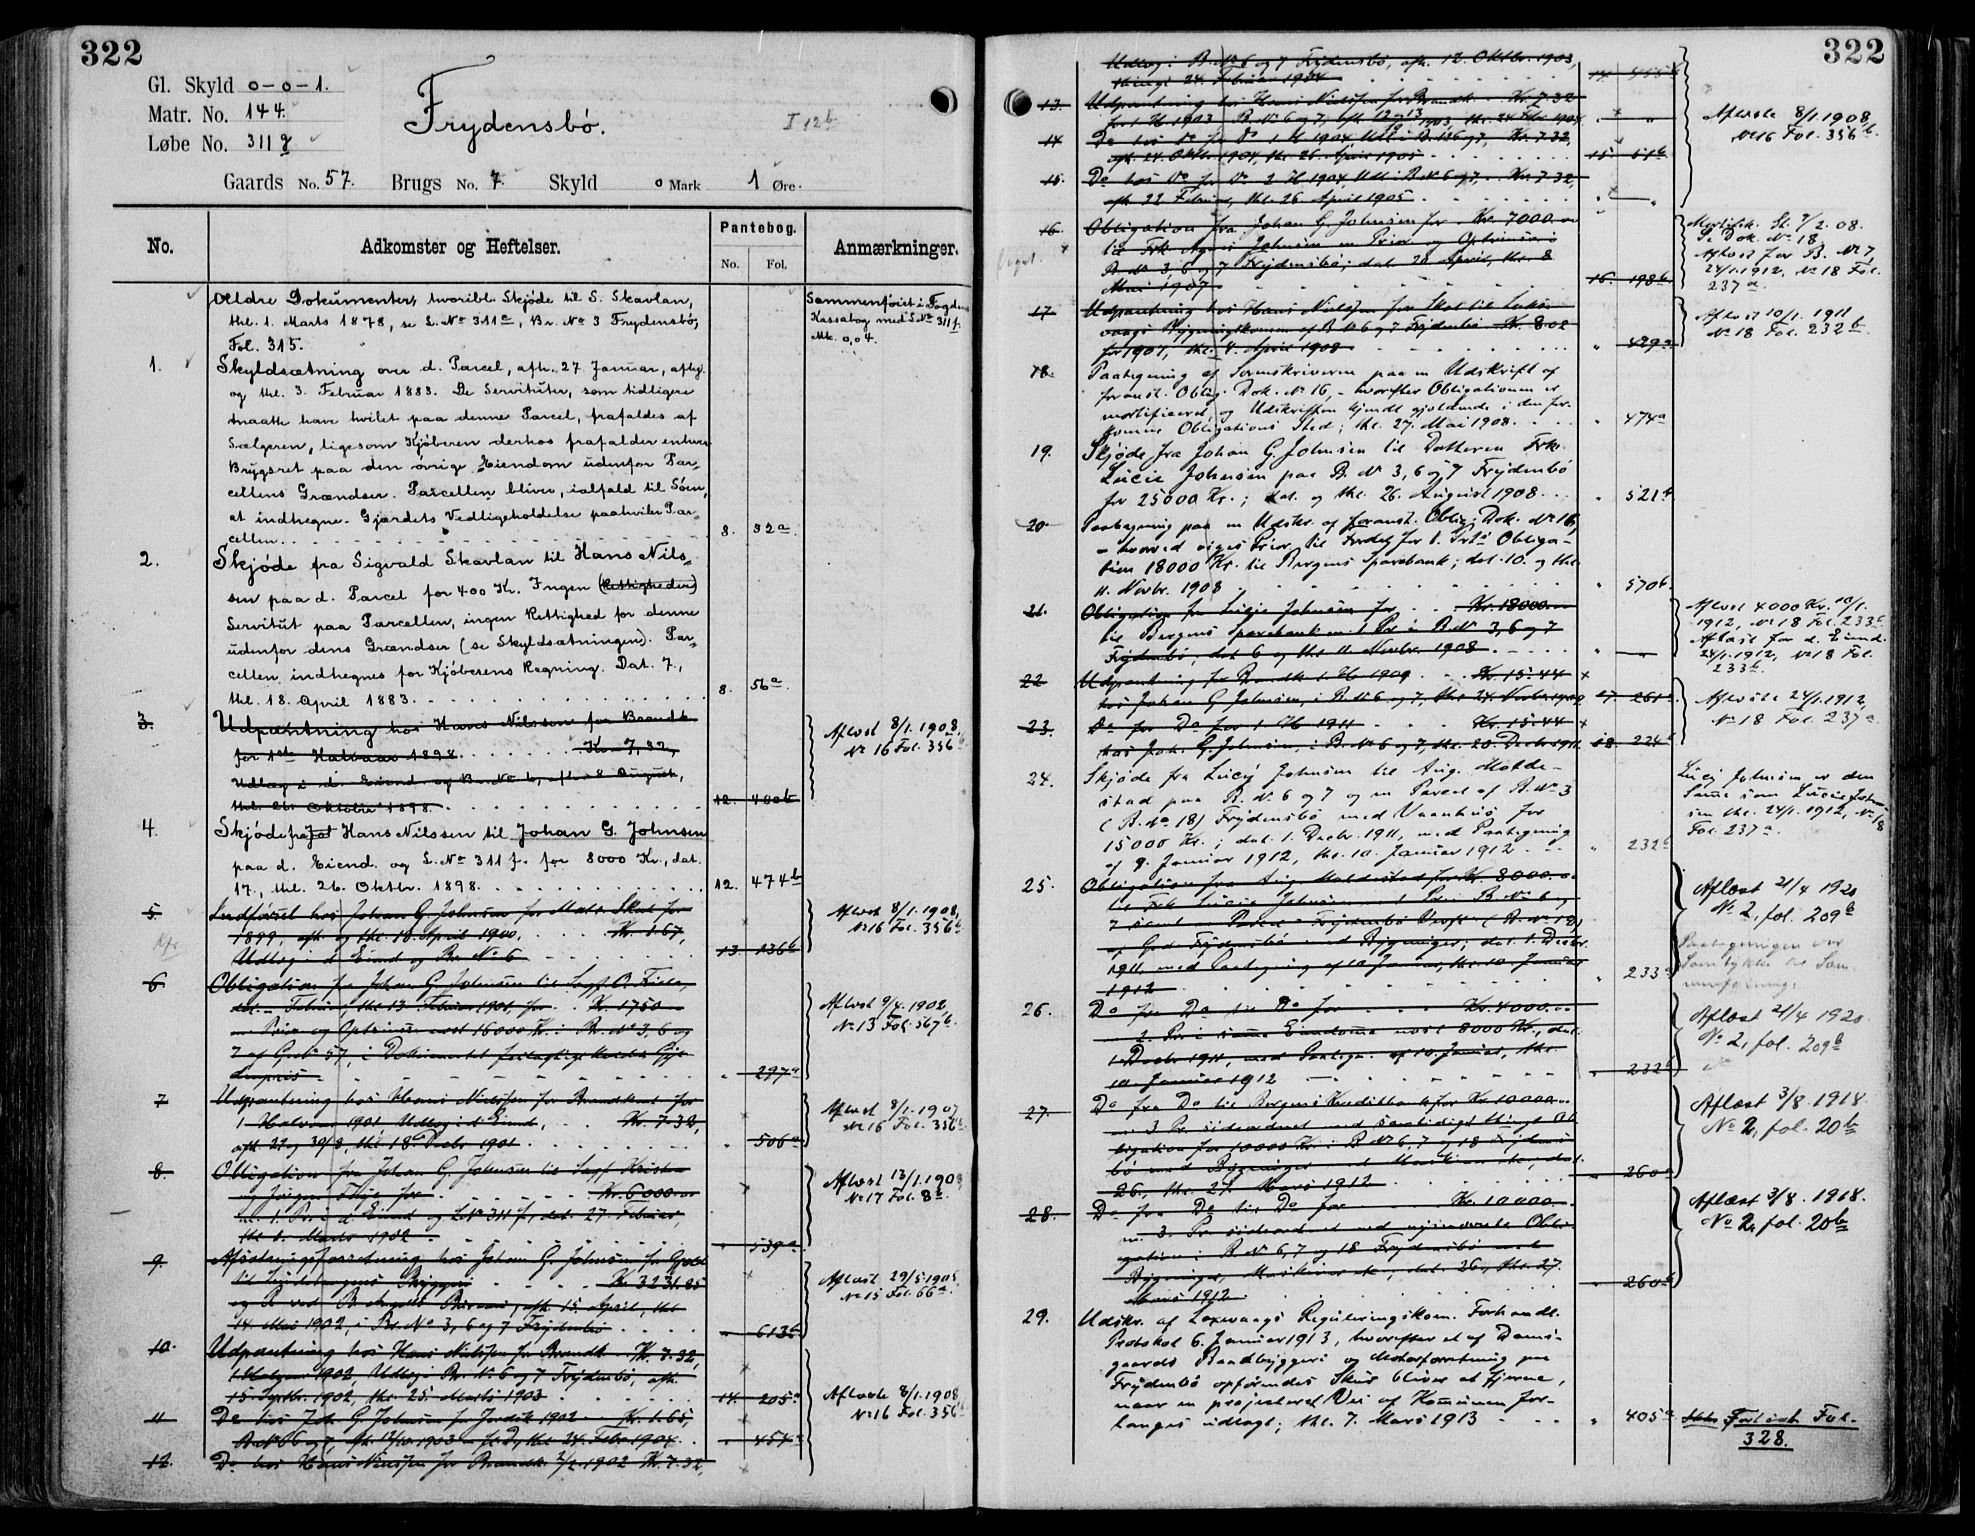 322
Gl. Skyld 0-0-1.
Matr. No. 144.
Løbe No. 311 g
Frydensbö.
I 12b
Gaards No. 57. Brugs No. 7. Skyld 0 Mark 1 Øre.
No. Adkomster og Heftelser. Pantebog. No. Fol. Anmærkninger.
Ældre Dokumenter, hvoribl. Skjøde til S. Skavlan,
thl. 1. Marts 1878, se L. No 311a, Br. No 3 Frydensbö,
Fol. 315.
Sammenföiet i Fogdens
Kassabog med L.No 311 f.
Mk. 0,04.
1. Skyldsætning over d. Parcel, afh. 27 Januar, afhj.
og thl. 3. Februar 1883. De Servituter, som tidligere
maatte have hvilet paa denne Parcel, frafaldes af
Sælgeren, ligesom Kjöberen derhos frafalder enhver
Brugsret paa den övrige Eiendom udenfor Par-
cellens Grændser. Parcellen bliver, ialfald til Söen,
at indhegne. Gjærdets Vedligeholdelse paahviler Par-
cellen. 8. 32a
2. Skjöde fra Sigvald Skavlan til Hans Nils-
sen paa d. Parcel for 400 Kr. Ingen (Rettigheder)
Servitut paa Parcellen, ingen Rettighed for denne
udenfor dens Grændser (se Skyldsætningen). Par-
cellen indhegnes for Kjöberens Regning. Dat. 7.,
thl. 18. April 1883. 8. 56a
3. Udpantning hos Hans Nilssen for Brandk.
for 1ste Halvaar 1898 Kr. 7,32,
Udlæg i d. Eiend. og Br. No 6, afh. 8 August,
thl. Oktober 1898. 12. 400b
Aflæst 8/1. 1908.
No 16 Fol. 356b
4. Skjöde fra Hans Nilssen til Johan G. Johnsen
paa d. Eiend. og L. No 311 f. for 8000 Kr., dat.
17., thl. 26. Oktbr. 1898. 12. 474b
5. Indførsel hos Johan G Johnsen for Matr. Skat for
1899, afh. og thl. 18. April 1900. Kr. 1.67,
Udlæg i d Eiend og Br. No 6 13. 136b
Aflæst 8/1. 1908,
No 16 Fol. 356b
6. Obligation fra Johan G. Johnsen til Sagf. O.
Februar, thl. 13 Februar 1901, for Kr. 1750
Prior. og Optrinsret 16000 Kr. i Br. No 3, 6 og
7 af Gno 57, i Dokumentet
297a
Aflæst 9/4. 1902,
No 13 Fol. 567b.
7. Udpantning hos Hans Nielssen for Brandkont. for
1 Halvaar 1901 Udlæg i d Eiend, Kr. 7.32,
afh. 22 og 30/8, thl. 18 Decbr 1901 506a
Aflæst 8/1. 1907
No 16 Fol. 356b
8. Obligation fra Johan G. Johnsen til Sagf. Kristian
og Jörgen for Kr. 6000.00
m. 1. Pr. i d Eiend og L No 311 f, dat. 27. Februar,
thl. 1. Marts 1902 539a
Aflæst 13/1. 1909
No 17 Fol. 8b.
9. hos Johan G. Johnsen for
Bryggeri Kr. 3231.85
afh. 15. April, thl
14. Mai 1902, i Br. No 3, 6 og 7 Frydenbö 613b
Aflæst 29/5 1905
No 15 Fol. 66a.
10. Udpantning hos Hans Nielssen for Brandk. Kr. 7.32,
1 Halvaar 1902, Udlæg i Br. No 6 og 7 Frydenbö, afh.
15 Septbr. 1902, thl. 25. Marts 1903 14. 205a
Aflæste 8/1. 1908
No 16 Fol. 356b
11. Do hos Joh. G Johnsen for 1902 Kr. 1.65,
B No 6 og 7, afh. 1903, thl. 24. Febr. 1904. 454a
12. Do hos Hans Nielssen for Brandk. 2/2. 1902 Kr. 7.32,
322
Udlæg i B. No 6 og 7 Frydensbö, afh. 12. Oktbr. 1903,
thingl. 24. Februar 1904 14. 455b
13. Udpantning hos Hans Nielssen for Brandk. Kr. 7.32
for 1 H 1903 B. No 6 og 7, afh. 1903, thl. 24 Febr. 1904
14. Do hos Do for Do 1 H 1904 Udl. i B. No 6 og 7, Kr. 7.32,
afh. 24. Oktbr. 1904, thl. 26. April 1905 15. 51b
15. Do hos Do for Do 2 H 1904, Udl. i B. No 6 og 7, Kr. 7.32,
afh. 22 Februar, thl. 26. April 1905
Aflæste 8/1. 1908,
No 16 Fol. 356b.
16. Obligation fra Johan G. Johnsen for Kr. 7000.00
til Frk. Agnes Johnsen m Prior. og Optrinsret i
B No 3, 6 og 7 Frydensbö; dat. 20 April, thl. 8
Mai 1907 16. 198b
Mortifik. St. 7/2. 08.
Se Dok. No 18
Aflæst for B. No 7,
24/1. 1912, No 18 Fol.
237a.
17. Udpantning hos Hans Nielssen for Skat til Laxe-
vaags Bygningskommun af B No 6 og 7 Frydenbö Kr. 8.02
for 1907, thl. 4. April 1908 429a
Aflæst 10/1. 1911
No 18 Fol. 232b.
18. Paategning af Sorenskriveren paa en Udskrift af
foranst. Oblig. Dok. No 16, - hvorefter Obligationen er
mortifiseret, og Udskriften kjendt gjældende i den for-
komne Obligations Sted; thl. 27. Mai 1908. 474a
19. Skjöde fra Johan G. Johnsen til Datteren Frk.
Lucie Johnsen paa B. No 3, 6 og 7 Frydenbö
for 25000 Kr.; dat. og thl. 26. August 1908. 521b
20. Paategning paa en Udskr. af foranst. Oblig. Dok. No 16,
- hvorved viges Prior. til Fordel for 1. Prts Obliga-
tion 18000 Kr. til Bergens Sparebank; dat. 10. og thl.
11. Novbr. 1908 570b.
21. Obligation fra Lucie Johnsen for Kr. 18000.00
til Bergens Sparebank m. 1 Pr. i B No 3, 6 og 7
Frydenbö, dat. 6 og thl. 11. Novbr. 1908.
Aflæst 4000 Kr. 10/1.
1912, No 18 Fol. 233a
Aflæst for d. Eiend.
24/1. 1912, No 18 Fol.
233b.
22. Udpantning for Brandk. 1. H 1909 Kr. 15.44
hos Johan G Johnsen, i B No 6 og 7, thl. 24. Novbr. 1909 17. 261a
23. Do for Do for 1 H 1911 Kr. 15.44
hos Joh. G. Johnsen, i B. No 6 og 7, thl. 20. Decbr 1911. 18. 224b
Aflæste 24/1. 1912,
No 18 Fol. 237a.
24. Skjöde fra Lucy Johnsen til Aug. Molde-
stad paa B. No 6 og 7 og en Parcel af B. No 3
(B. No 18) Frydensbö med Vaanhus for
15000 Kr.; dat. 1. Decbr. 1911, med Paategning
af 9. Januar 1912, thl. 10. Januar 1912 232b
Lucy Johnsen er den
samme som Lucie John-
sen thl. 24/1. 1912, No 18
Fol. 237a.
25. Obligation fra Aug. Moldestad for Kr. 8000.00
til Frk. Lucie Johnsen m 1 Pr. i B. No 6 og
7 samt en Parcel Frydensbö (B. No 18)
af Gno Frydensbö med Bygninger; dat. 1. Decbr.
1911, med Paategning af 10 Januar, thl. 10. Januar
1912 233a
Aflæst 21/4 1920
No 2, fol. 209b
26. Do fra Do til Do for Kr. 4000.00
2. Pr. i samme Eiendomme næst 8000 Kr., dat.
1 Decbr. 1911, med Paategn. af 10. Januar, thl.
10. Januar 1912 232b
Aflæst 21/4 1920
No 2, fol. 209b
27. Do fra Do til Bergens Kreditbank for Kr. 10000.00
m 3 Pr. sideordnet med samtidigt thingl. Ob-
ligation for 10000 Kr. i B No 6, 7 og 18 Fryden-
bö med Bygninger, Maskiner etc., dat.
26., thl. 27. Mars 1912 260a
Aflæst 3/8 1918.
No 2, fol. 20b
28. Do fra Do til Do for Kr. 10000
m. 3. Pr. sideordnet med Obli-
gation i B. No 6, 7 og 18 Frydensbö med
Bygninger, Maskiner etc., dat. 26., thl. 27.
Mars 1912 260b
Aflæst 3/8. 1918.
No 2, fol. 20b
29. Udskr. af Laxevaags Reguleringskom. Forhandl.
Protokol 6. Januar 1913, hvorefter et af Dams-
gaards Baadbyggeri og Motorforretning paa
Frydenbö opförendes Skur bliver at fjerne,
naar en projekteret Vei af Kommunen for-
langes udlagt; thl. 7. Mars 1913 405a
Fortsat Fol.
328.